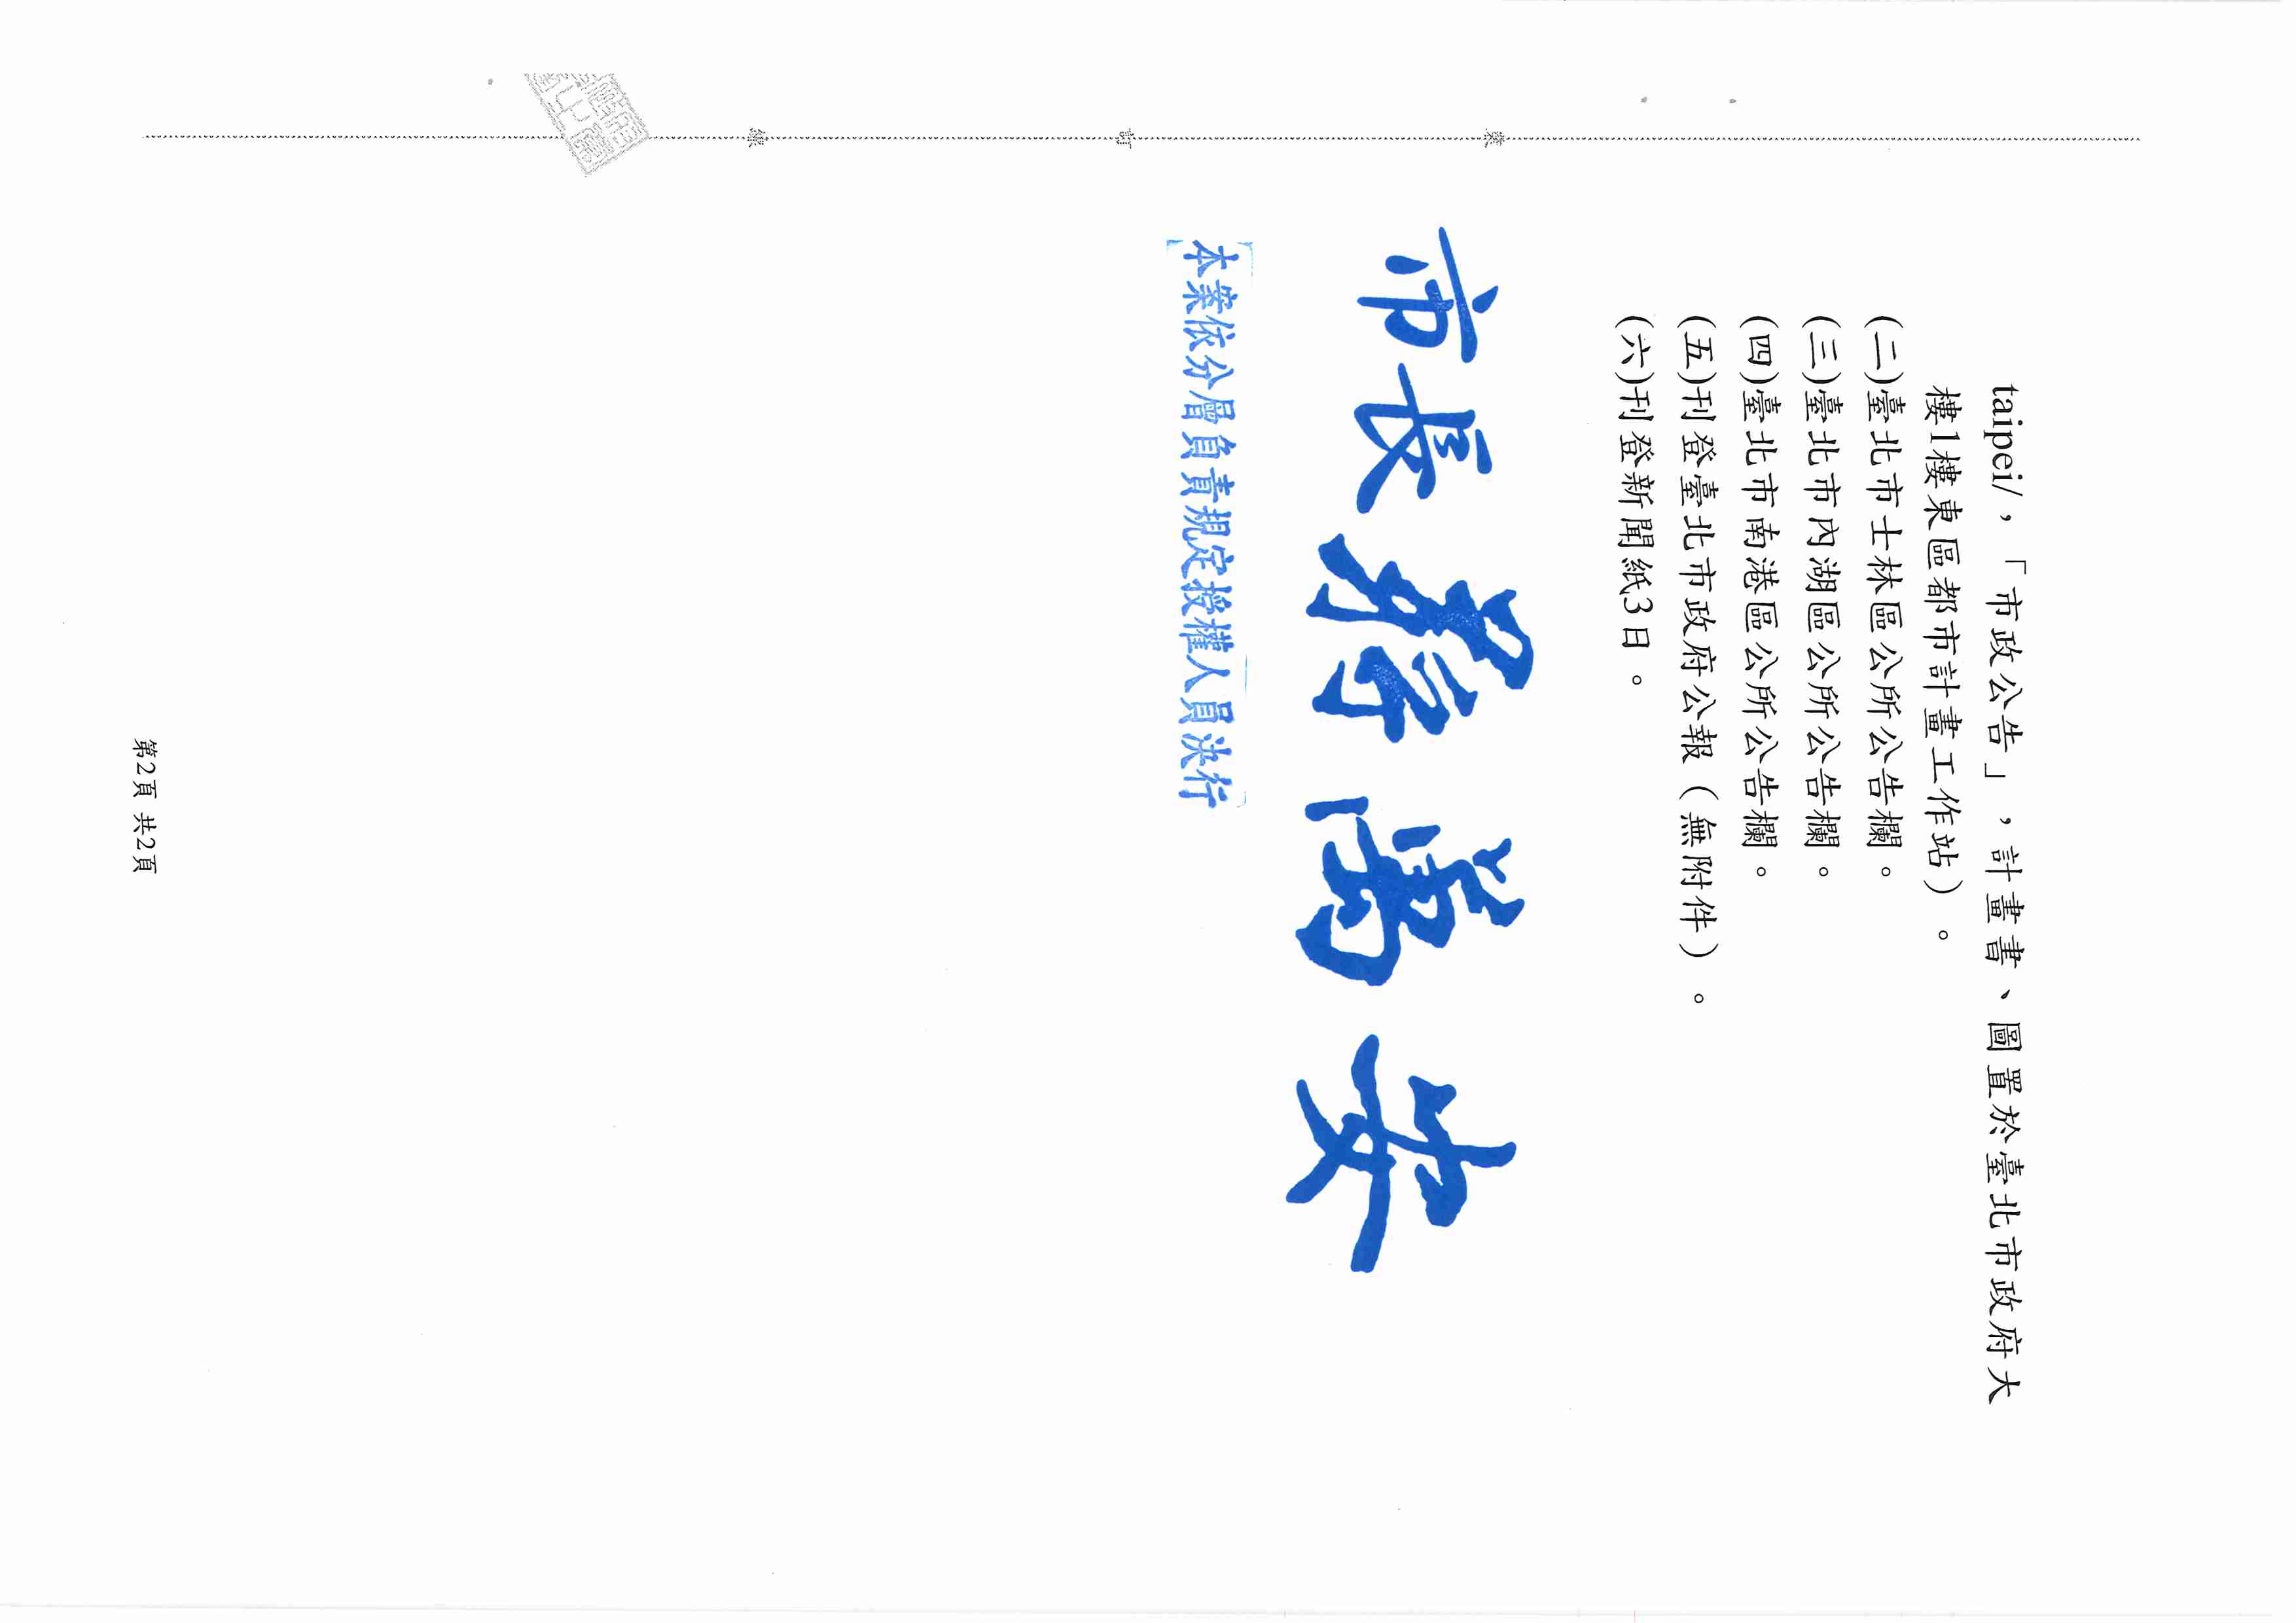 taipei/，「市政公告」，計畫書、圖置於臺北市政府大
樓1樓東區都市計畫工作站）。
(二)臺北市士林區公所公告欄。
(三)臺北市內湖區公所公告欄。
(四)臺北市南港區公所公告欄。
(五)刊登臺北市政府公報（無附件）。
(六)刊登新聞紙3日。
市長蔣萬安
本案依分層負責規定授權人員決行
裝
訂
線
第2頁 共2頁